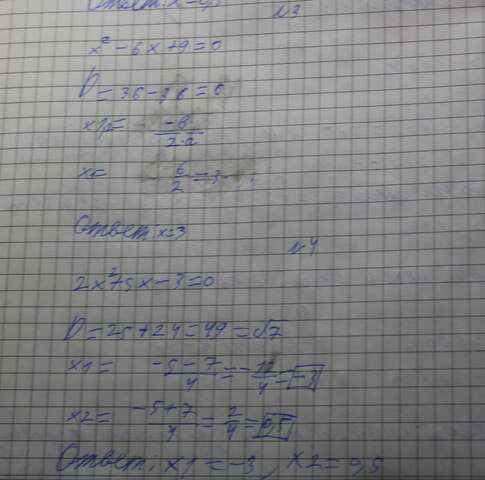 Ответ: x=
№3
x² - 6x + 9 = 0
D = 36 - 36 = 0
x1,2 = -6/2·2
x = 6/2 = 3
Ответ: x=3
№4
2x² + 5x - 3 = 0
D = 25 + 24 = 49 = √7
x1 = -5 - 7/4 = -12/4 = -3
x2 = -5 + 7/4 = 2/4 = 0,5
Ответ: x1 = -3, x2 = 0,5